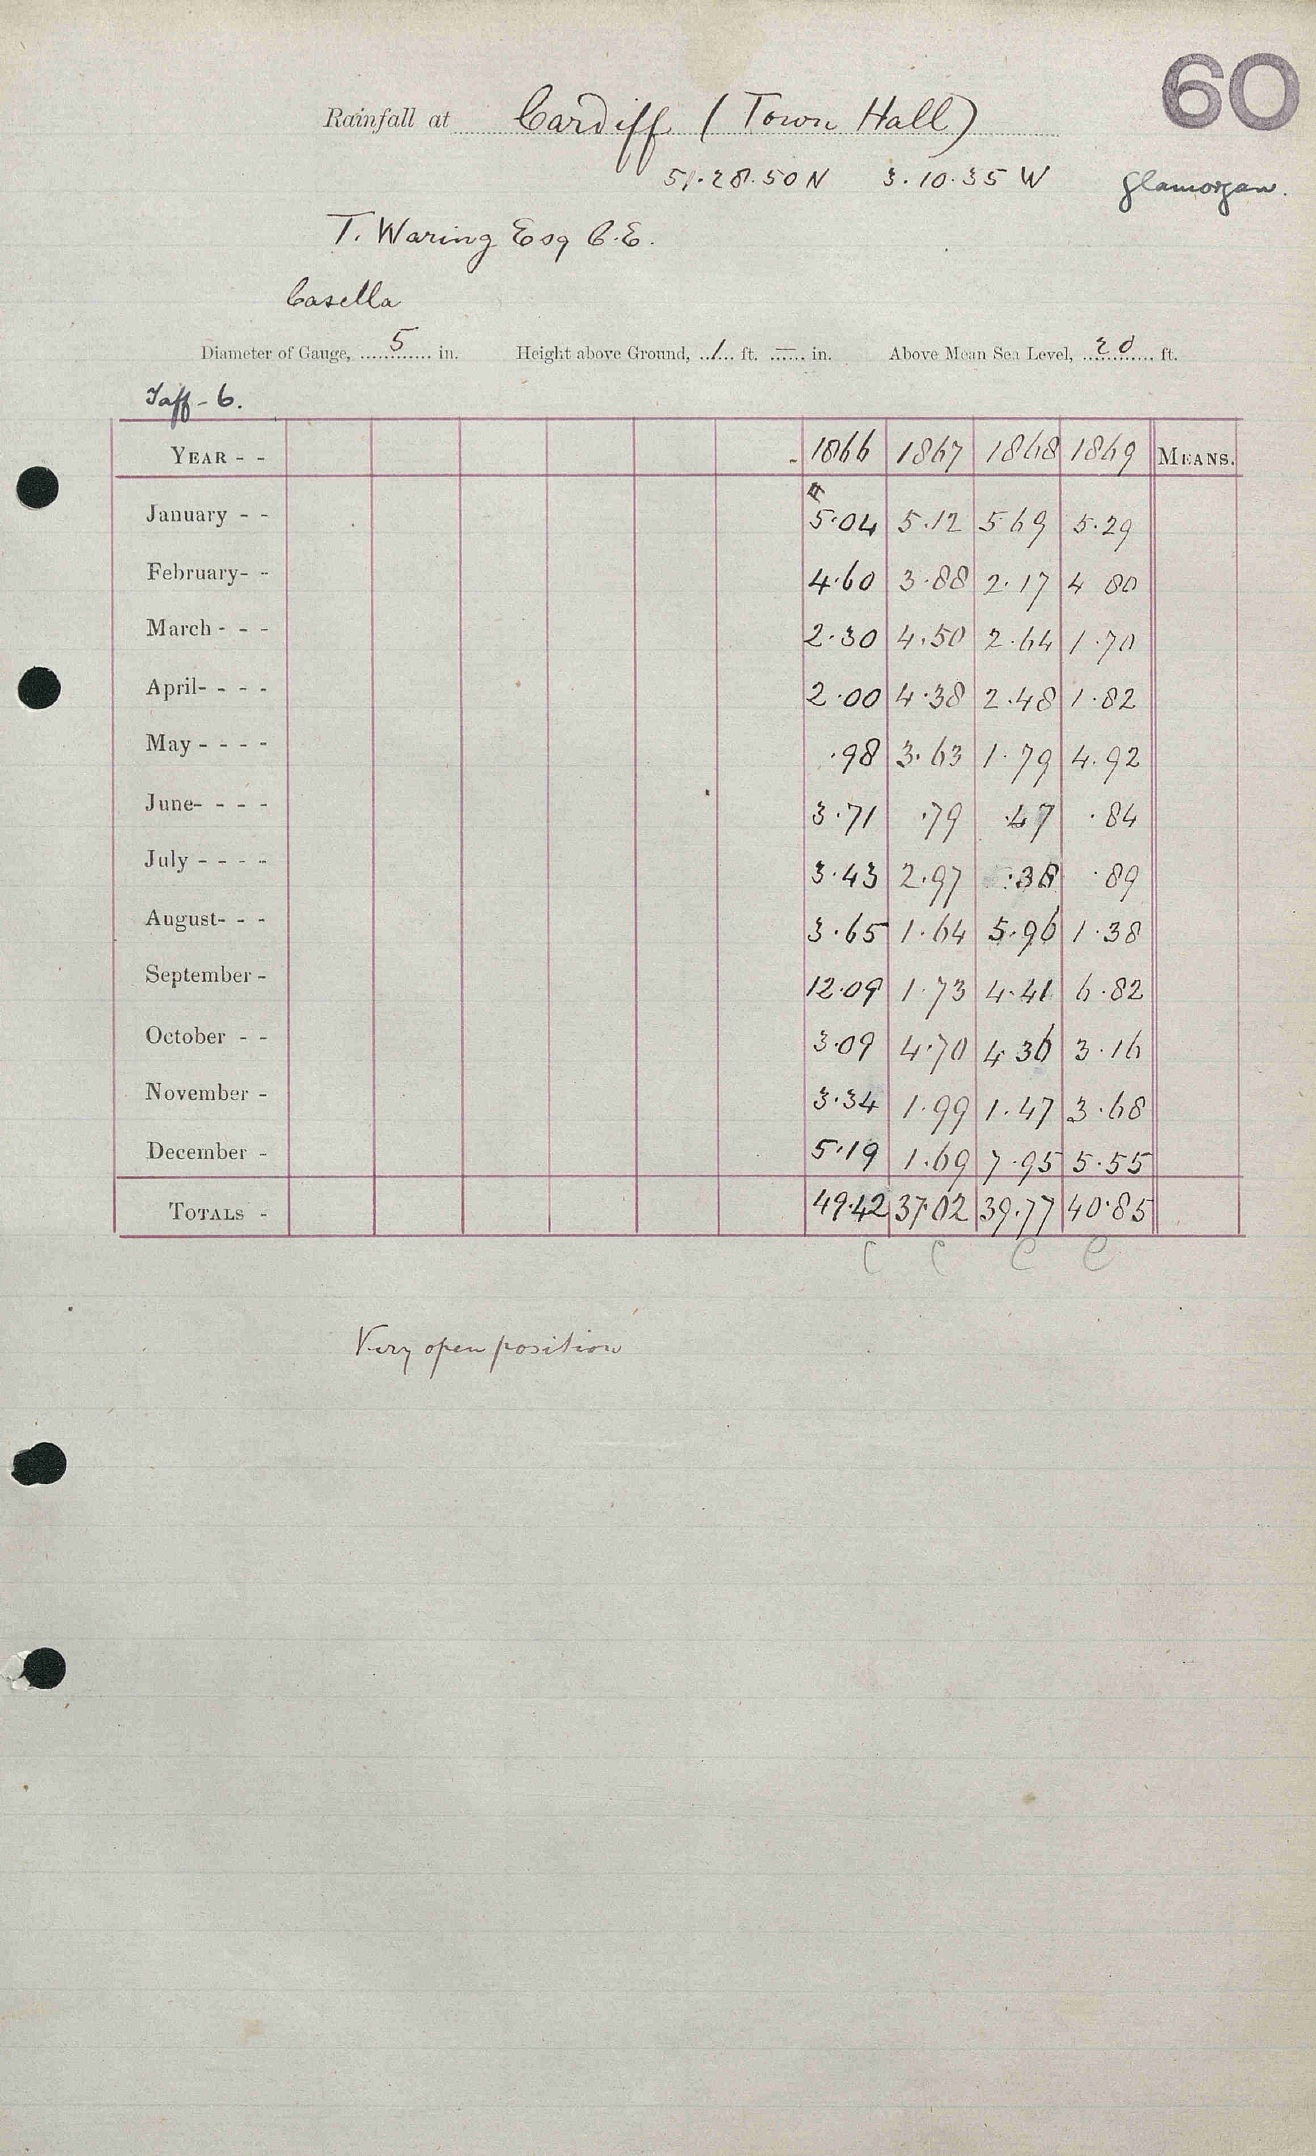 60
Rainfall at Cardiff (Town Hall)
51.28.50 N 3.10.35 W Glamorgan.
T. Waring Esq C.E.
Casella
Diameter of Gauge, 5 in. Height above Ground, 1 ft. — in. Above Mean Sea Level, 20 ft.
Taff - 6.
YEAR - - 1866 1867 1868 1869 MEANS.
January - - 5.04 5.12 5 69 5.29
February- - 4.60 3.88 2.17 4 80
March - - - 2.30 4.50 2.64 1.70
April- - - - 2.00 4.38 2.48 1.82
May - - - - .98 3.63 1.79 4.92
June- - - - 3.71 .79 .47 .84
July - - - - 3.43 2.97 .38 .89
August- - - 3.65 1.64 5.96 1.38
September - 12.09 1.73 4.41 6.82
October - - 3.09 4.70 4.36 3.16
November - 3.34 1.99 1.47 3.68
December - 5.19 1.69 7.95 5.55
TOTALS - 49.42 37.02 39.77 40.85
C C C C
Very open position